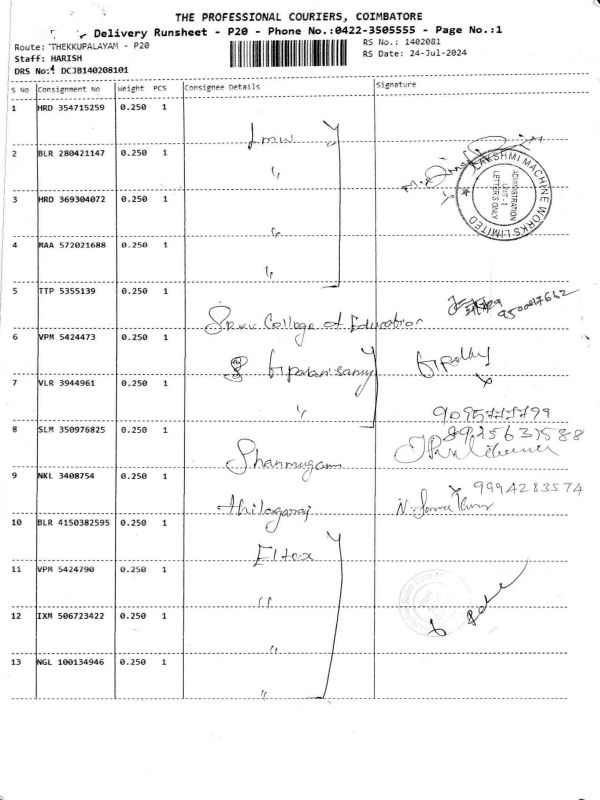 THE PROFESSIONAL COURIERS, COIMBATORE
Delivery Runsheet - P20 - Phone No.:0422-3505555 - Page No.:1
Route: THEKKUPALAYAM - P20
RS No.: 1402081
Staff: HARISH
RS Date: 24-Jul-2024
DRS No: DCJB140208101
S No Consignment No Weight PCS Consignee Details Signature
1 HRD 354715259 0.250 1
Lmw
2 BLR 280421147 0.250 1
〃
LAKSHMI MACHINE WORKS LIMITED
ADMINISTRATION
UNIT - 1
LETTERS ONLY
3 HRD 369304072 0.250 1
〃
4 MAA 572021688 0.250 1
〃
5 TTP 5355139 0.250 1
College of Education
6 VPM 5424473 0.250 1
7 VLR 3944961 0.250 1
〃
8 SLM 350976825 0.250 1
8925631588
Shanmugam
9 NKL 3408754 0.250 1
9994283574
Thilagaraj
10 BLR 4150382595 0.250 1
Eltex
11 VPM 5424790 0.250 1
〃
12 IXM 506723422 0.250 1
〃
13 NGL 100134946 0.250 1
〃